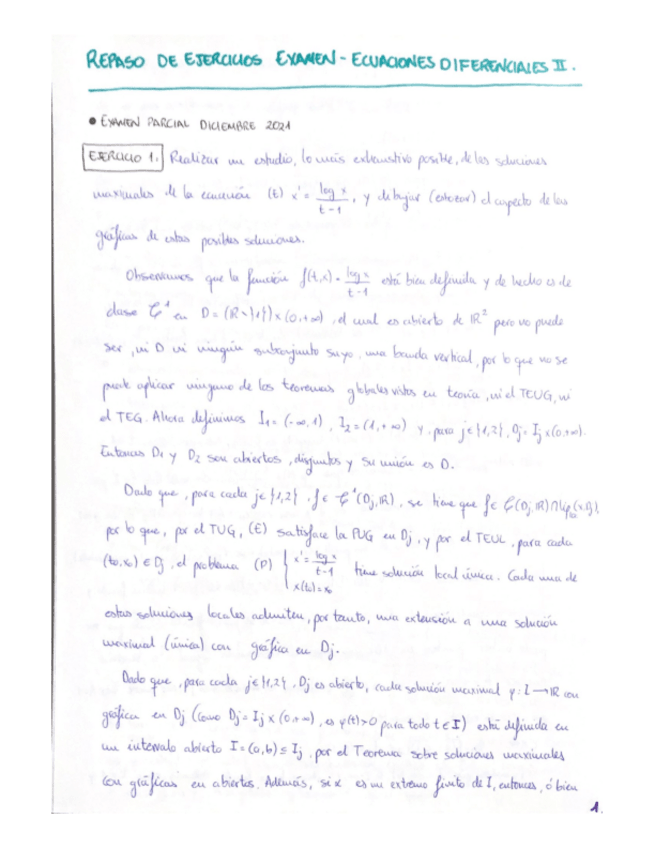 REPASO DE EJERCICIOS EXAMEN - ECUACIONES DIFERENCIALES II.
• EXAMEN PARCIAL DICIEMBRE 2021
EJERCICIO 1. Realizar un estudio, lo más exhaustivo posible, de las soluciones
maximales de la ecuación (E) x' = log x / t-1, y dibujar (esbozar) el aspecto de las
gráficas de estas posibles soluciones.
Observamos que la función f(t,x) = log x / t-1 está bien definida y de hecho es de
clase C¹ en D = (ℝ∖{1})×(0,+∞), el cual es abierto de ℝ² pero no puede
ser, ni D ni ningún subconjunto suyo, una banda vertical, por lo que no se
puede aplicar ninguno de los teoremas globales vistos en teoría, ni el TEUG, ni
el TEG. Ahora definimos I₁ = (-∞,1), I₂ = (1,+∞) y, para j∈{1,2}, Dj = Ij×(0,+∞).
Entonces D₁ y D₂ son abiertos, disjuntos y su unión es D.
Dado que, para cada j∈{1,2}, f∈C¹(Dj,ℝ), se tiene que f∈C(Dj,ℝ)∩Lip
por lo que, por el TUG, (E) satisface la PUG en Dj, y por el TEUL, para cada
(t₀,x₀)∈Dj, el problema (P) { x' = log x / t-1
x(t₀)=x₀ tiene solución local única. Cada una de
estas soluciones locales admiten, por tanto, una extensión a una solución
maximal (única) con gráfica en Dj.
Dado que, para cada j∈{1,2}, Dj es abierto, cada solución maximal φ: I→ℝ con
gráfica en Dj (como Dj = Ij×(0,+∞), es φ(t)>0 para todo t∈I) está definida en
un intervalo abierto I=(a,b)⊆Ij, por el Teorema sobre soluciones maximales
con gráficas en abiertos. Además, si x es un extremo finito de I, entonces, ó bien
1.